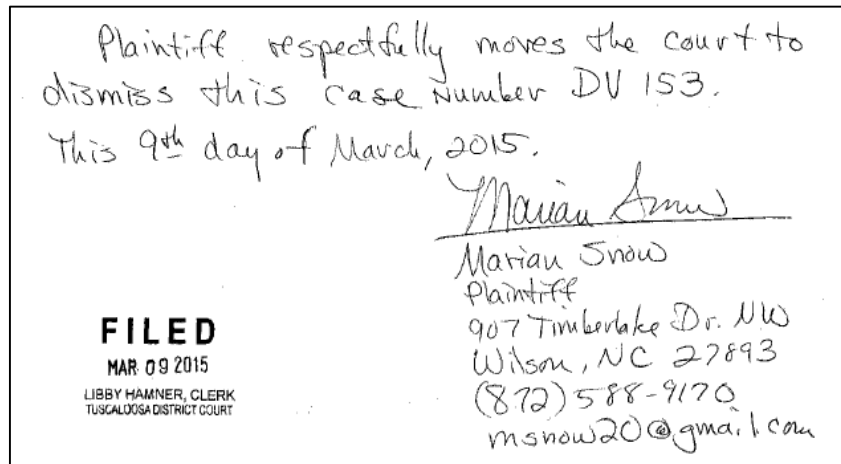 Plaintiff respectfully moves the court to
dismiss this case Number DV 153.
This 9th day of March, 2015.
Marian Snow
Marian Snow
Plaintiff
907 Timberlake Dr. NW
Wilson, NC 27893
(872) 588-9170
msnow20@gmail.com
FILED
MAR 09 2015
LIBBY HAMNER, CLERK
TUSCALOOSA DISTRICT COURT